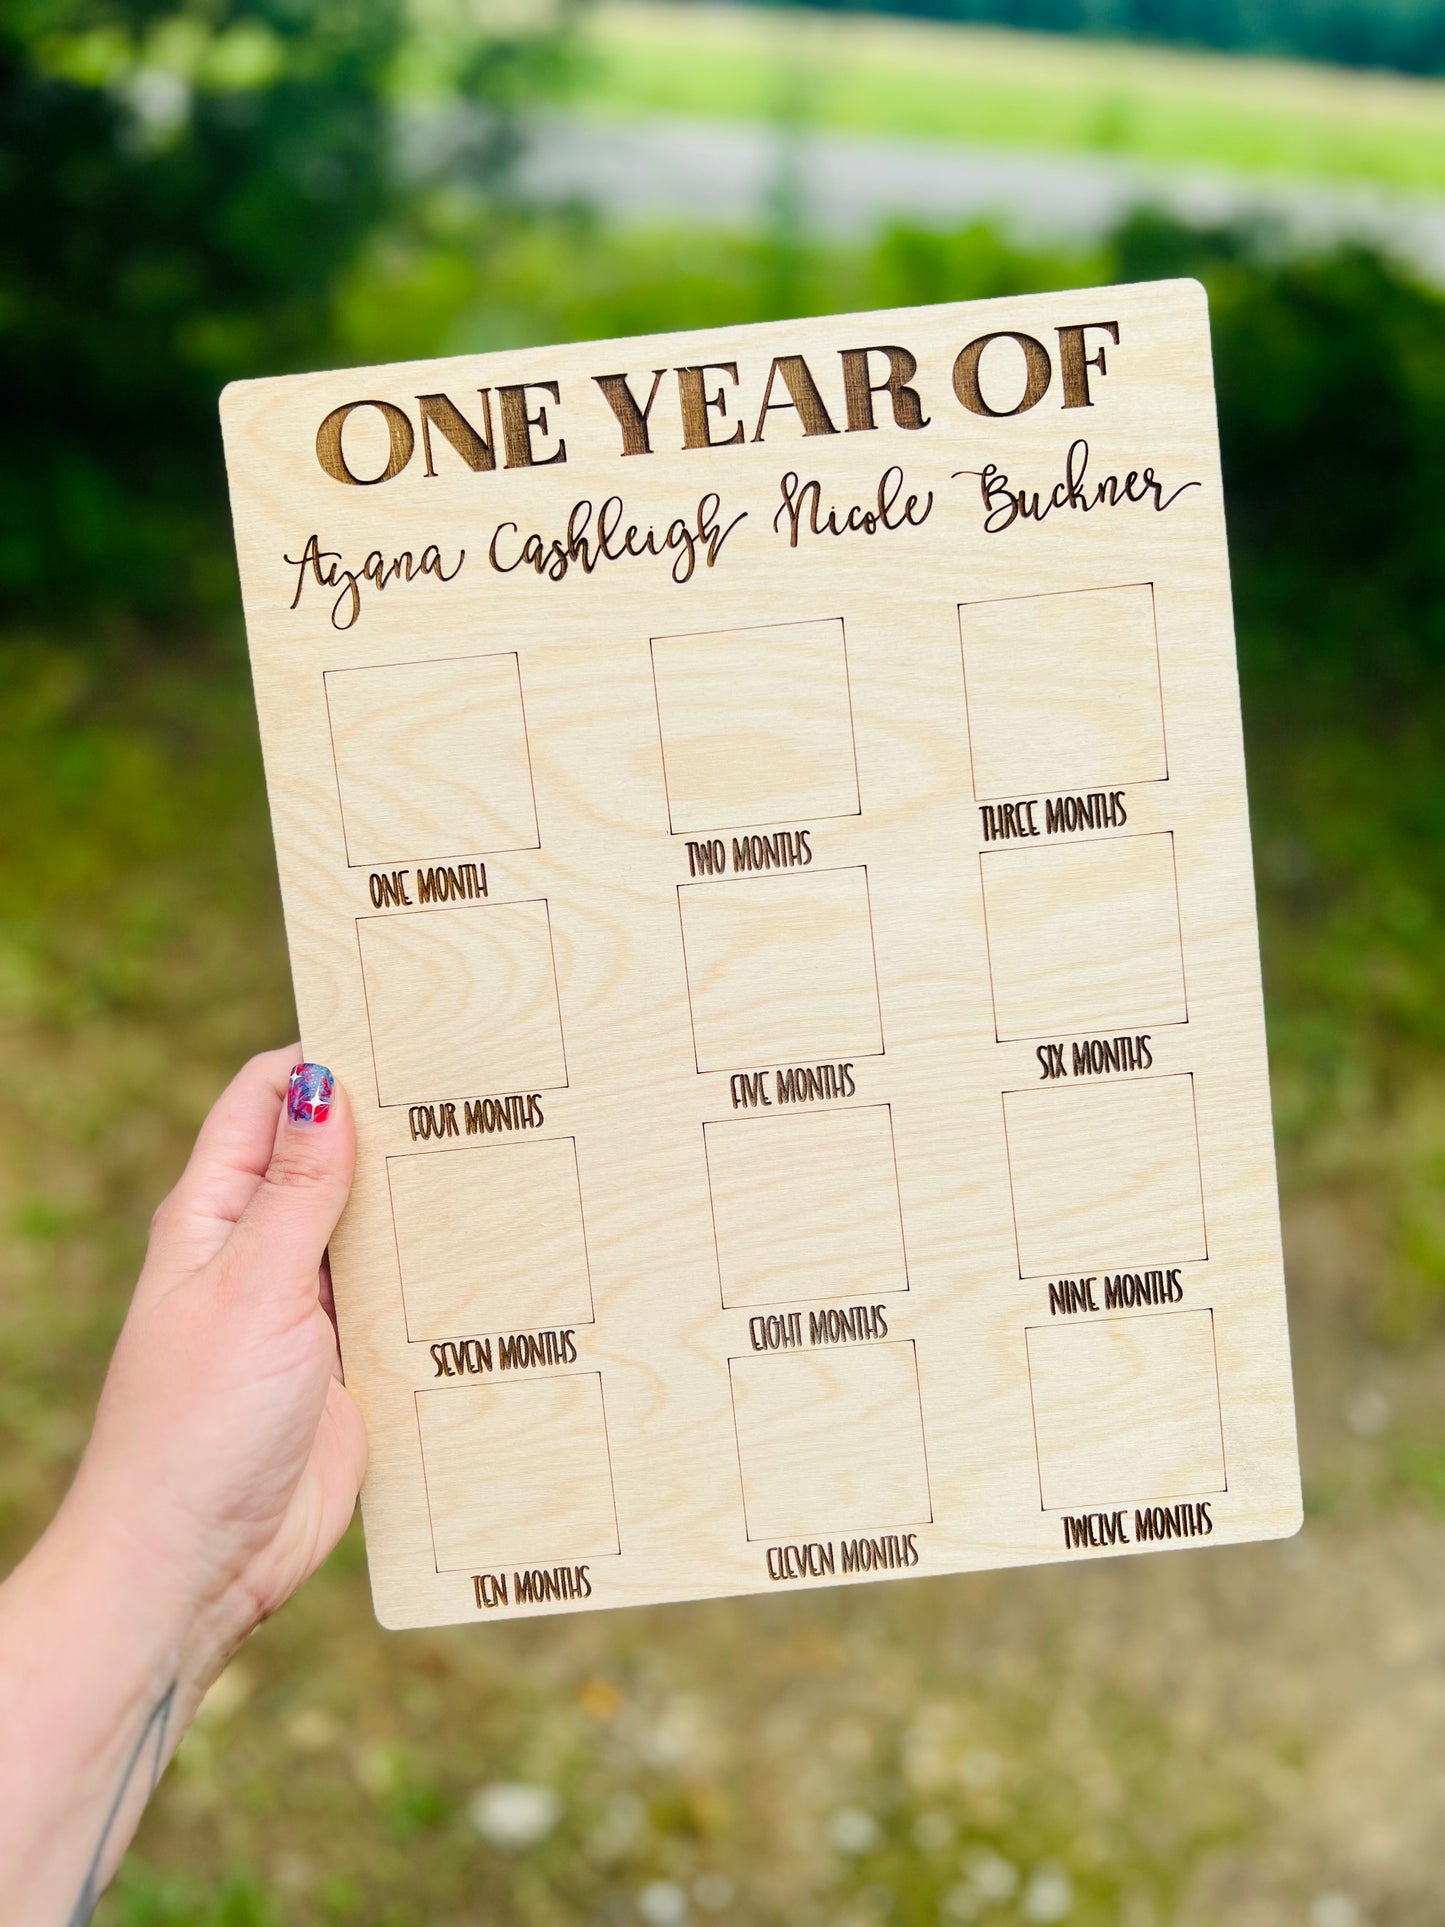 ONE YEAR OF
Ayana Cashleigh Nicole Buckner
ONE MONTH
TWO MONTHS
THREE MONTHS
FOUR MONTHS
FIVE MONTHS
SIX MONTHS
SEVEN MONTHS
EIGHT MONTHS
NINE MONTHS
TEN MONTHS
ELEVEN MONTHS
TWELVE MONTHS